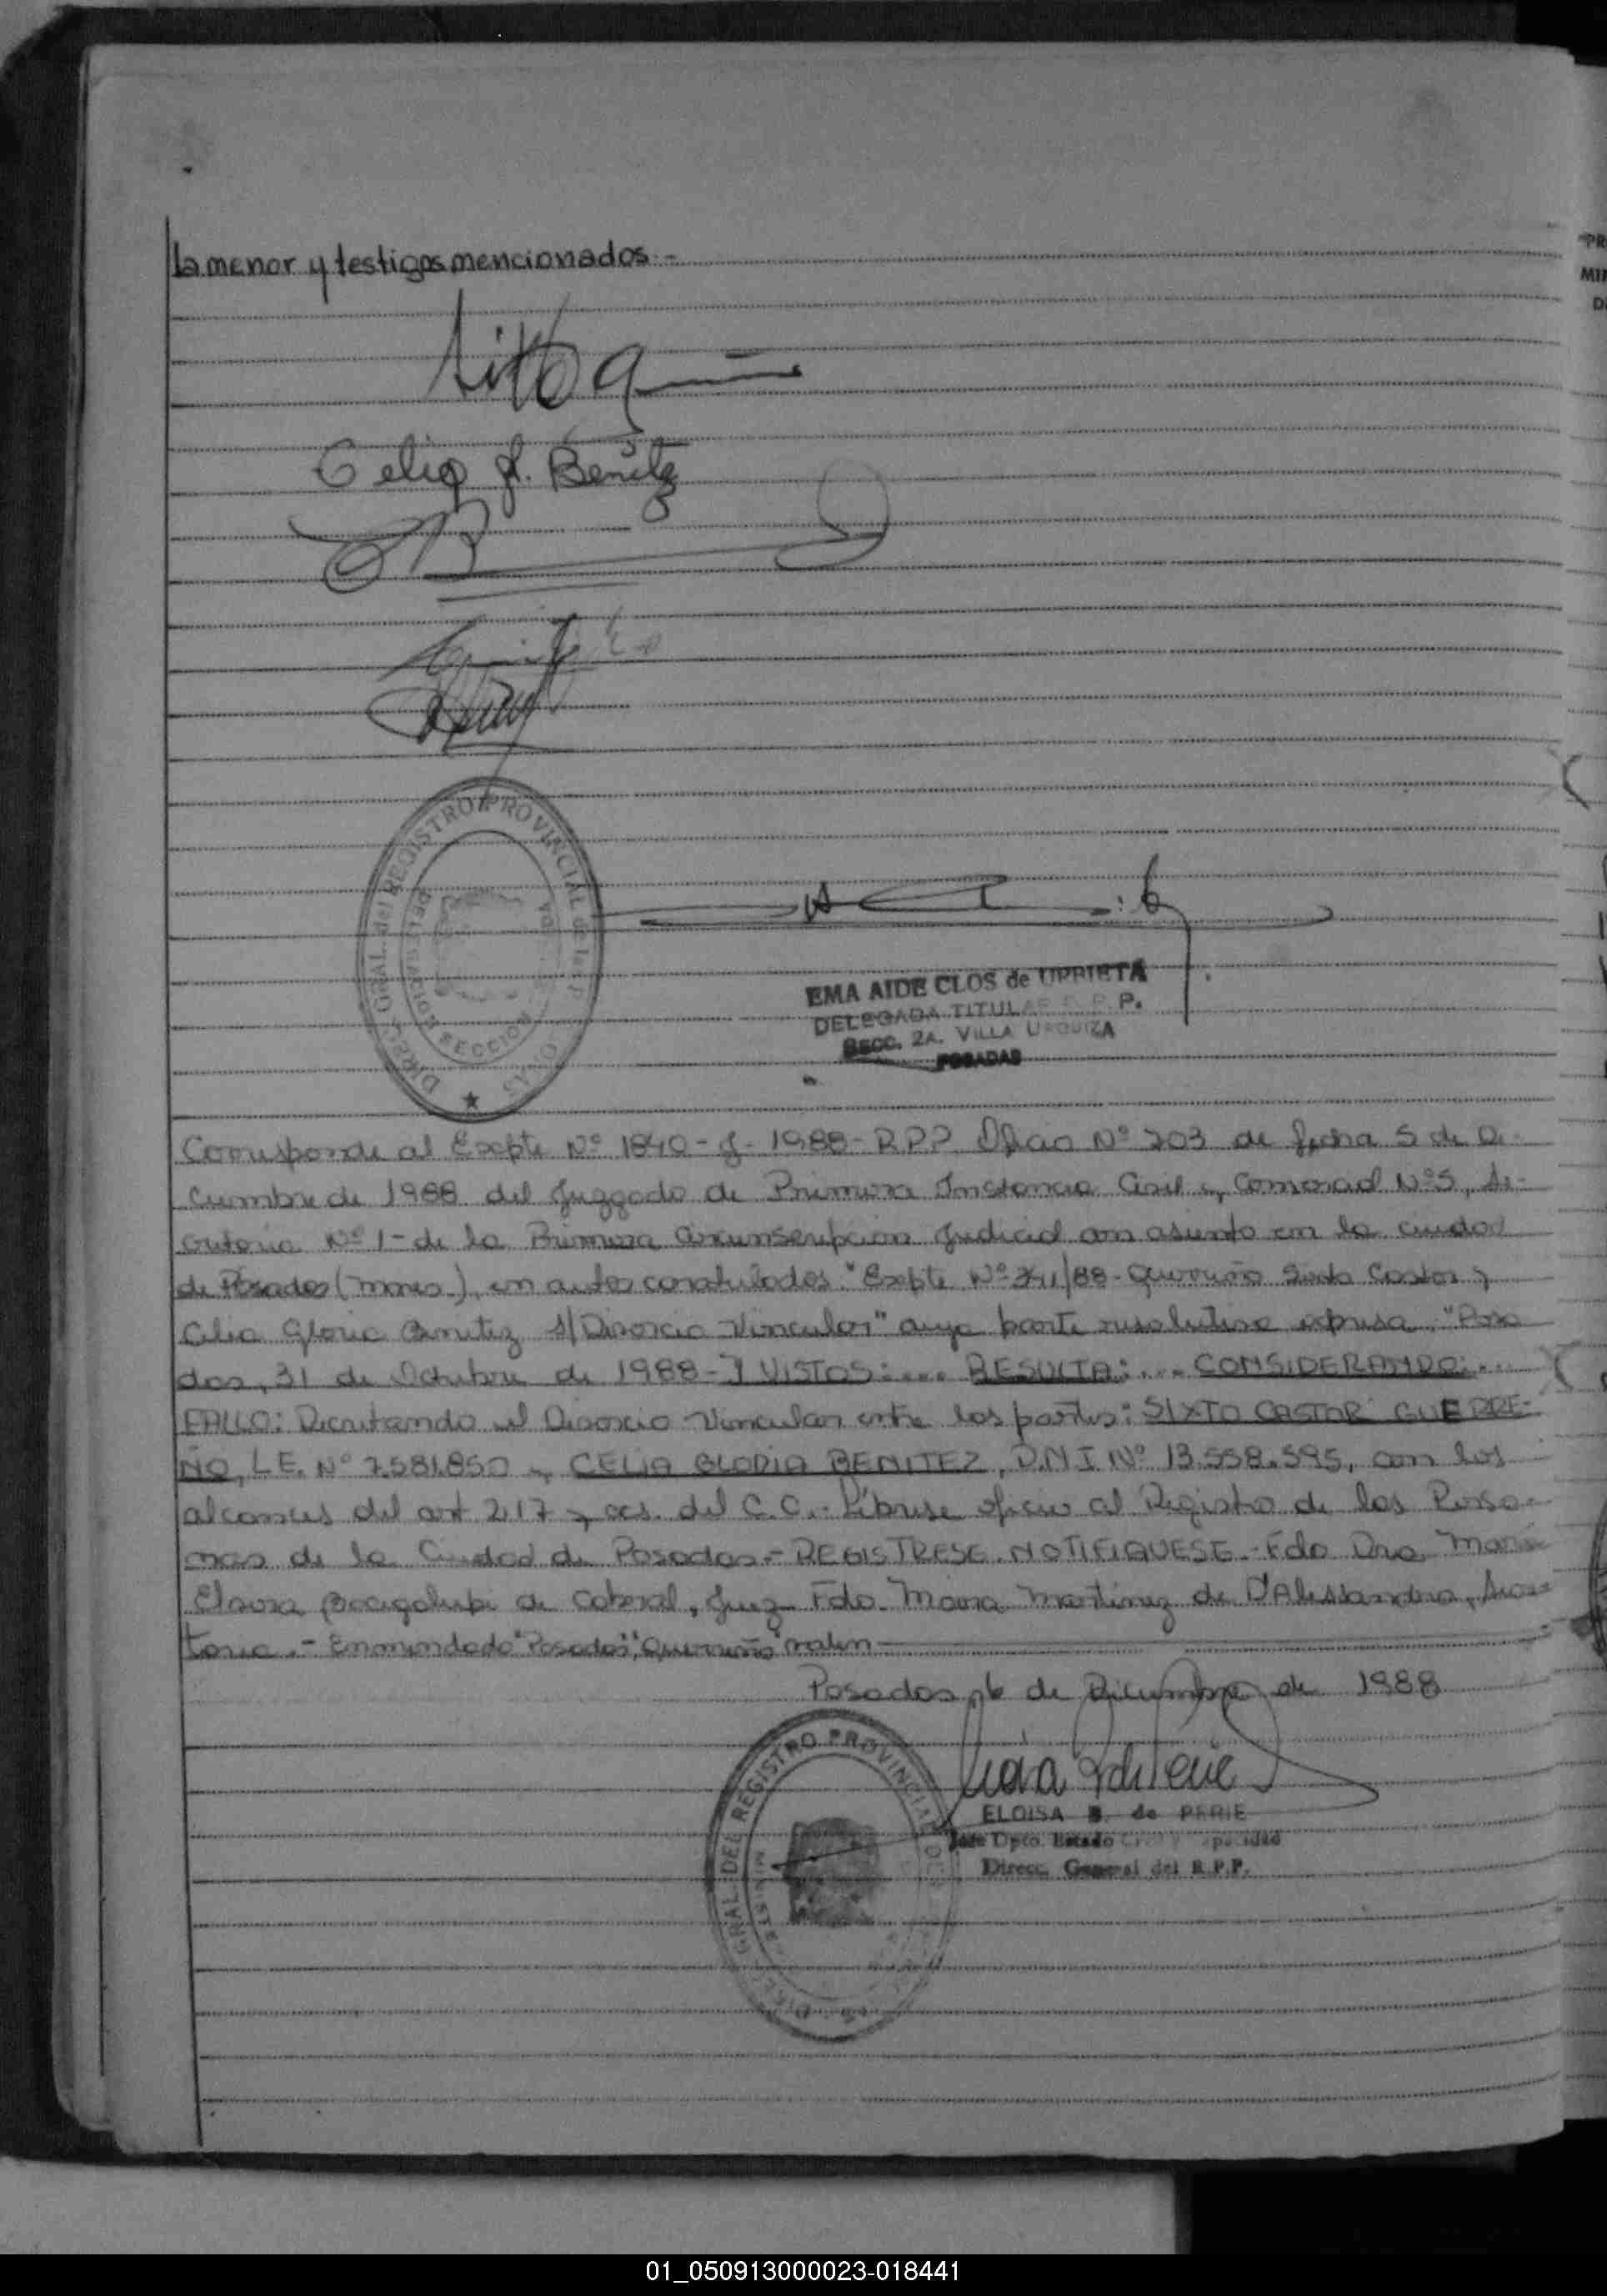 la menor y testigos mencionados.-
Celia G. Benitez
DIREC. GRAL. del REGISTRO PROVINCIAL de las P
DELEGACION SECCION
EMA AIDE CLOS de URRIETA
DELEGADA TITULAR R. P. P.
SECC. 2A. VILLA URQUIZA
POSADAS
Corresponde al Expte Nº 1840-J-1988-R.P.P. Oficio Nº 203 de fecha 5 de Di-
ciembre de 1988 del Juzgado de Primera Instancia Civil y Comercial Nº5, Se-
cretaria Nº 1- de la Primera Circunscripcion Judicial con asiento en la ciudad
de Posadas (Mnes.), en autos caratulados: "Expte Nº 341/88- Guerreño Sixto Castor y
Celia Gloria Benitez s/Divorcio Vincular" cuya parte resolutiva expresa: "Posa
das, 31 de Octubre de 1988- Y VISTOS:... RESULTA:... CONSIDERANDO:...
FALLO: Decretando el Divorcio Vincular entre las partes: SIXTO CASTOR GUERRE-
ÑO, L.E. Nº 7.581.850 y CELIA GLORIA BENITEZ, D.N.I Nº 13.558.595, con los
alcances del art 217 y ccs. del C.C.- Líbrese oficio al Registro de las Perso-
nas de la Ciudad de Posadas.- REGISTRESE. NOTIFIQUESE.- Fdo Dra. Maria
Elaura de Cabral, Juez Fdo. Maria Martinez de D'Alessandro, Secre
taria.- Enmendado "Posadas", "Guerreño" valen
Posadas, 6 de Diciembre de 1988
DIREC. GRAL. DEL REGISTRO PROVINCIAL DE
ELOISA B. de PERIE
Jefe Dpto. Estado Civil y Capacidad
Direcc. General del R.P.P.
PR
MIN
D
01_050913000023-018441